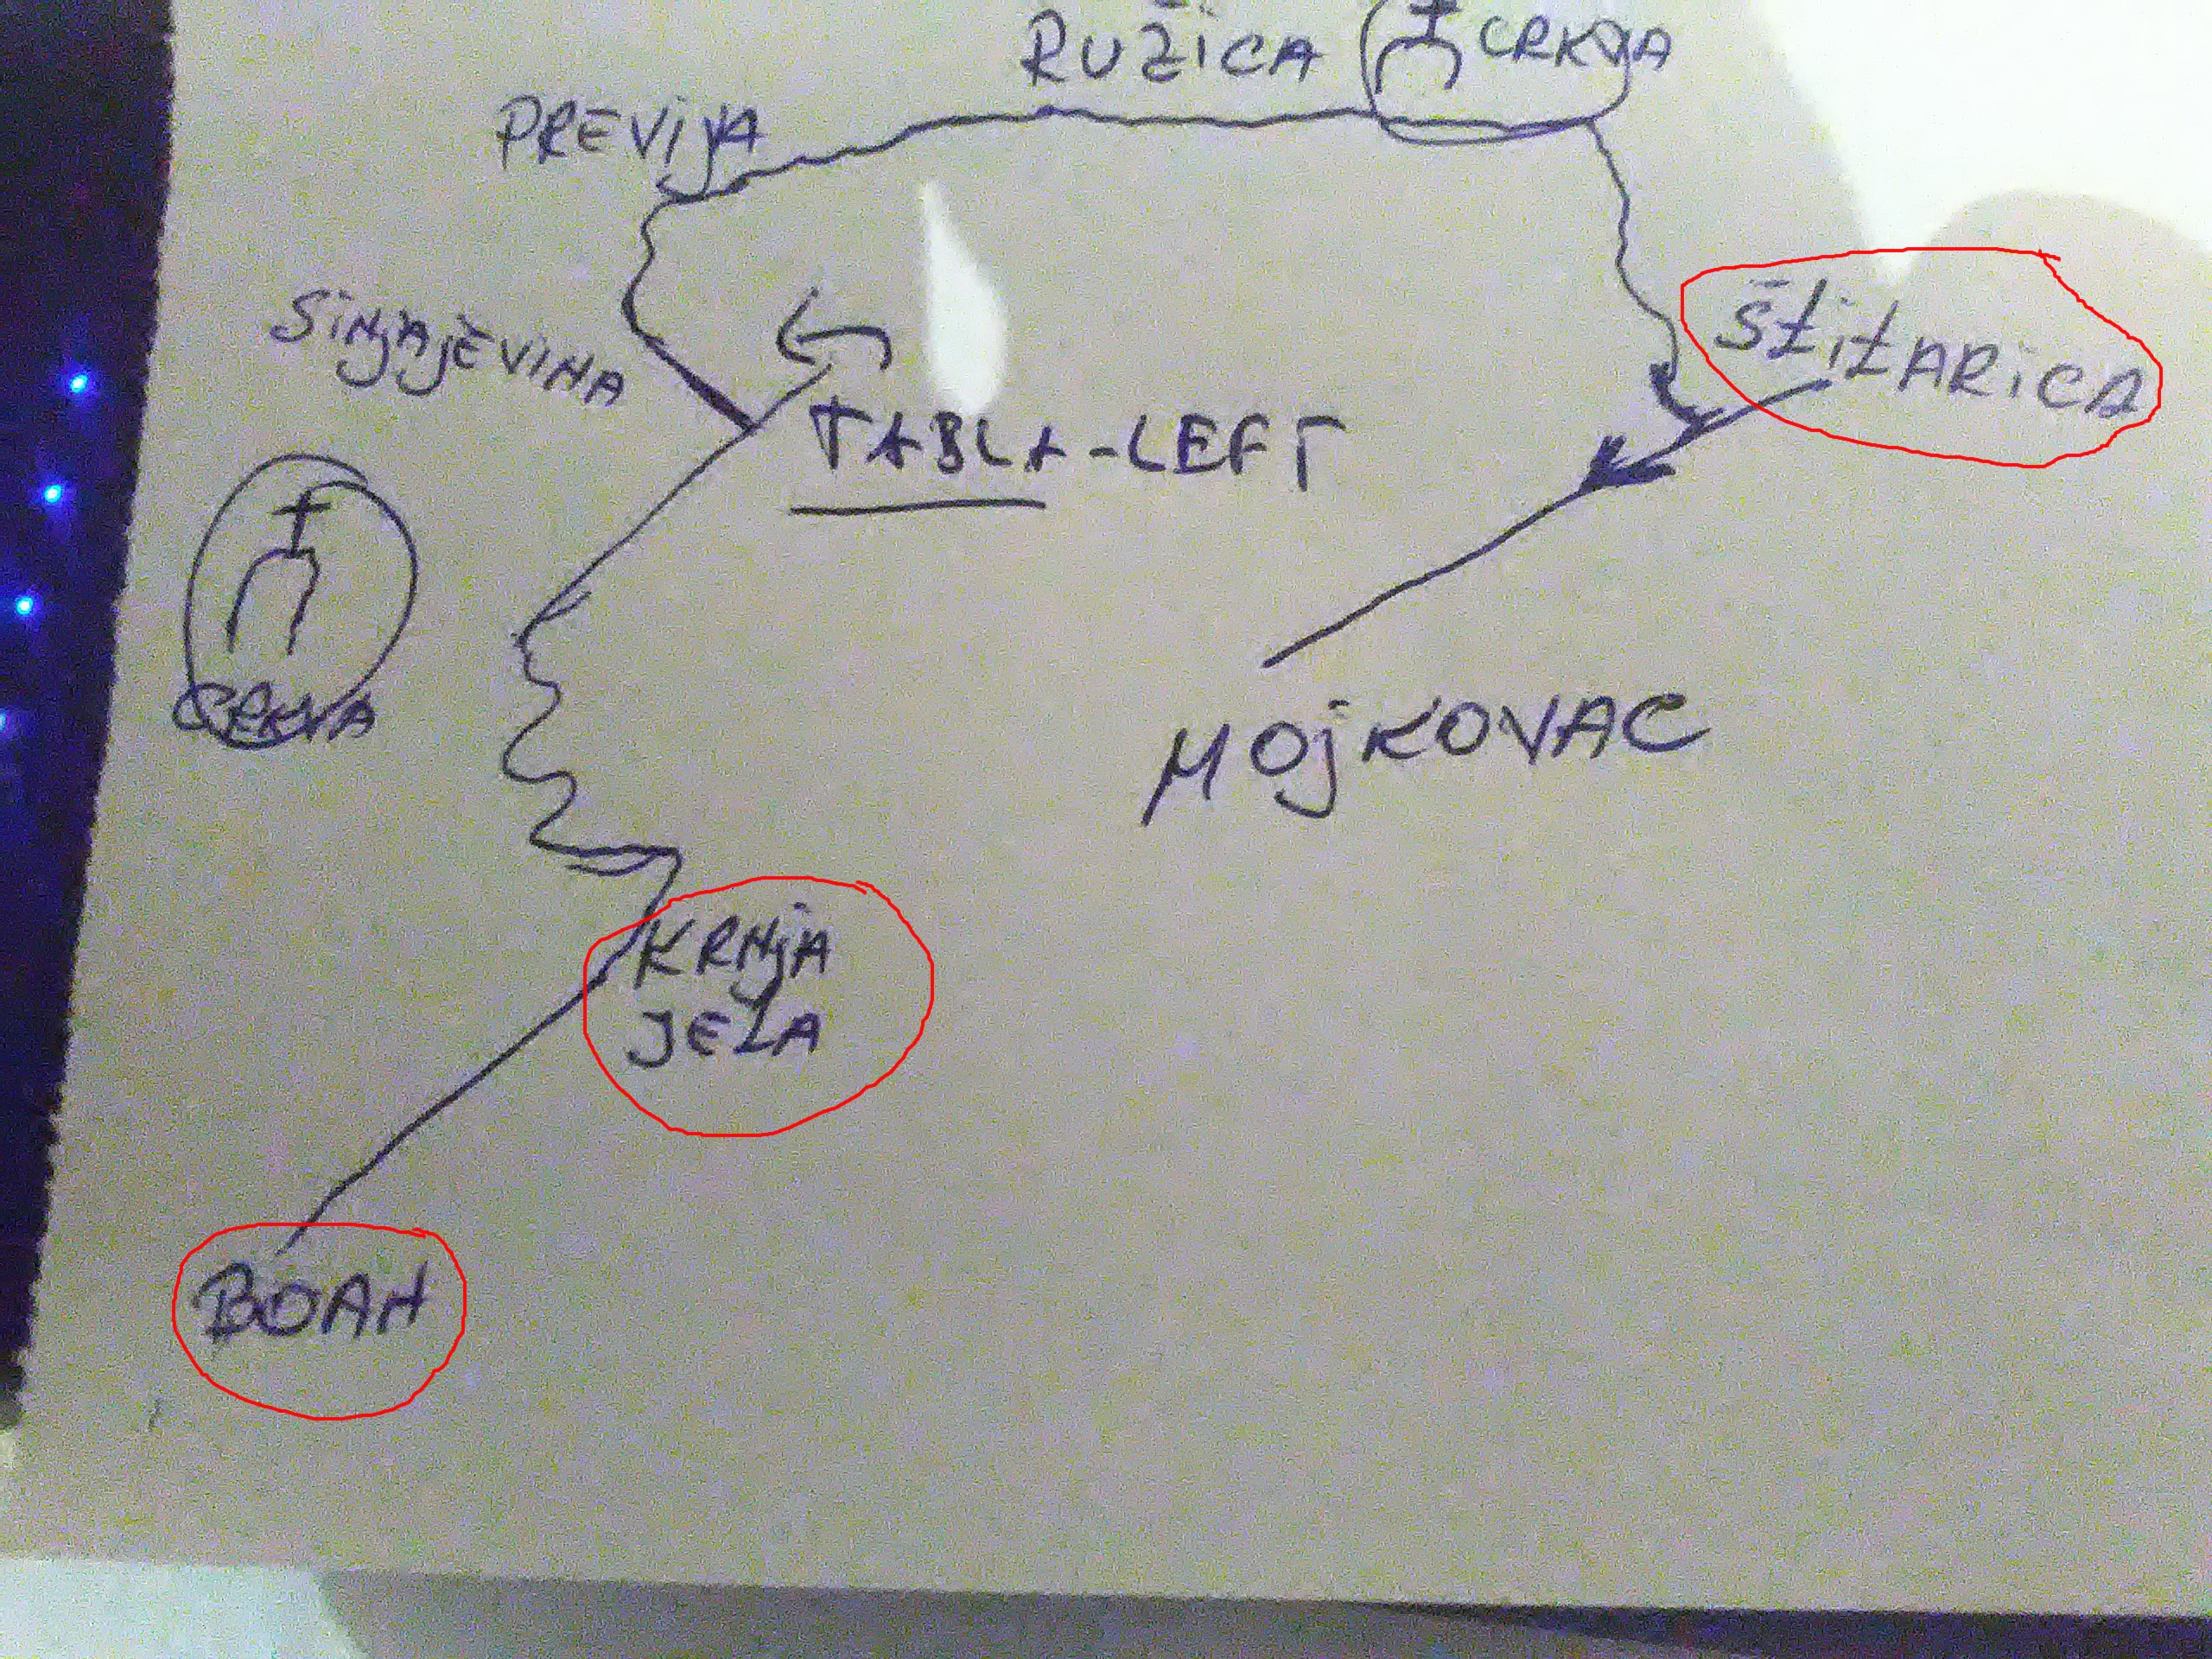 RUŽiCA CRKVA
PREViJA
SiNjAjEViNA
ŠtitARiCA
TABLA-LEFT
CRKVA
MOjKOVAC
KRNjA
JELA
BOAH